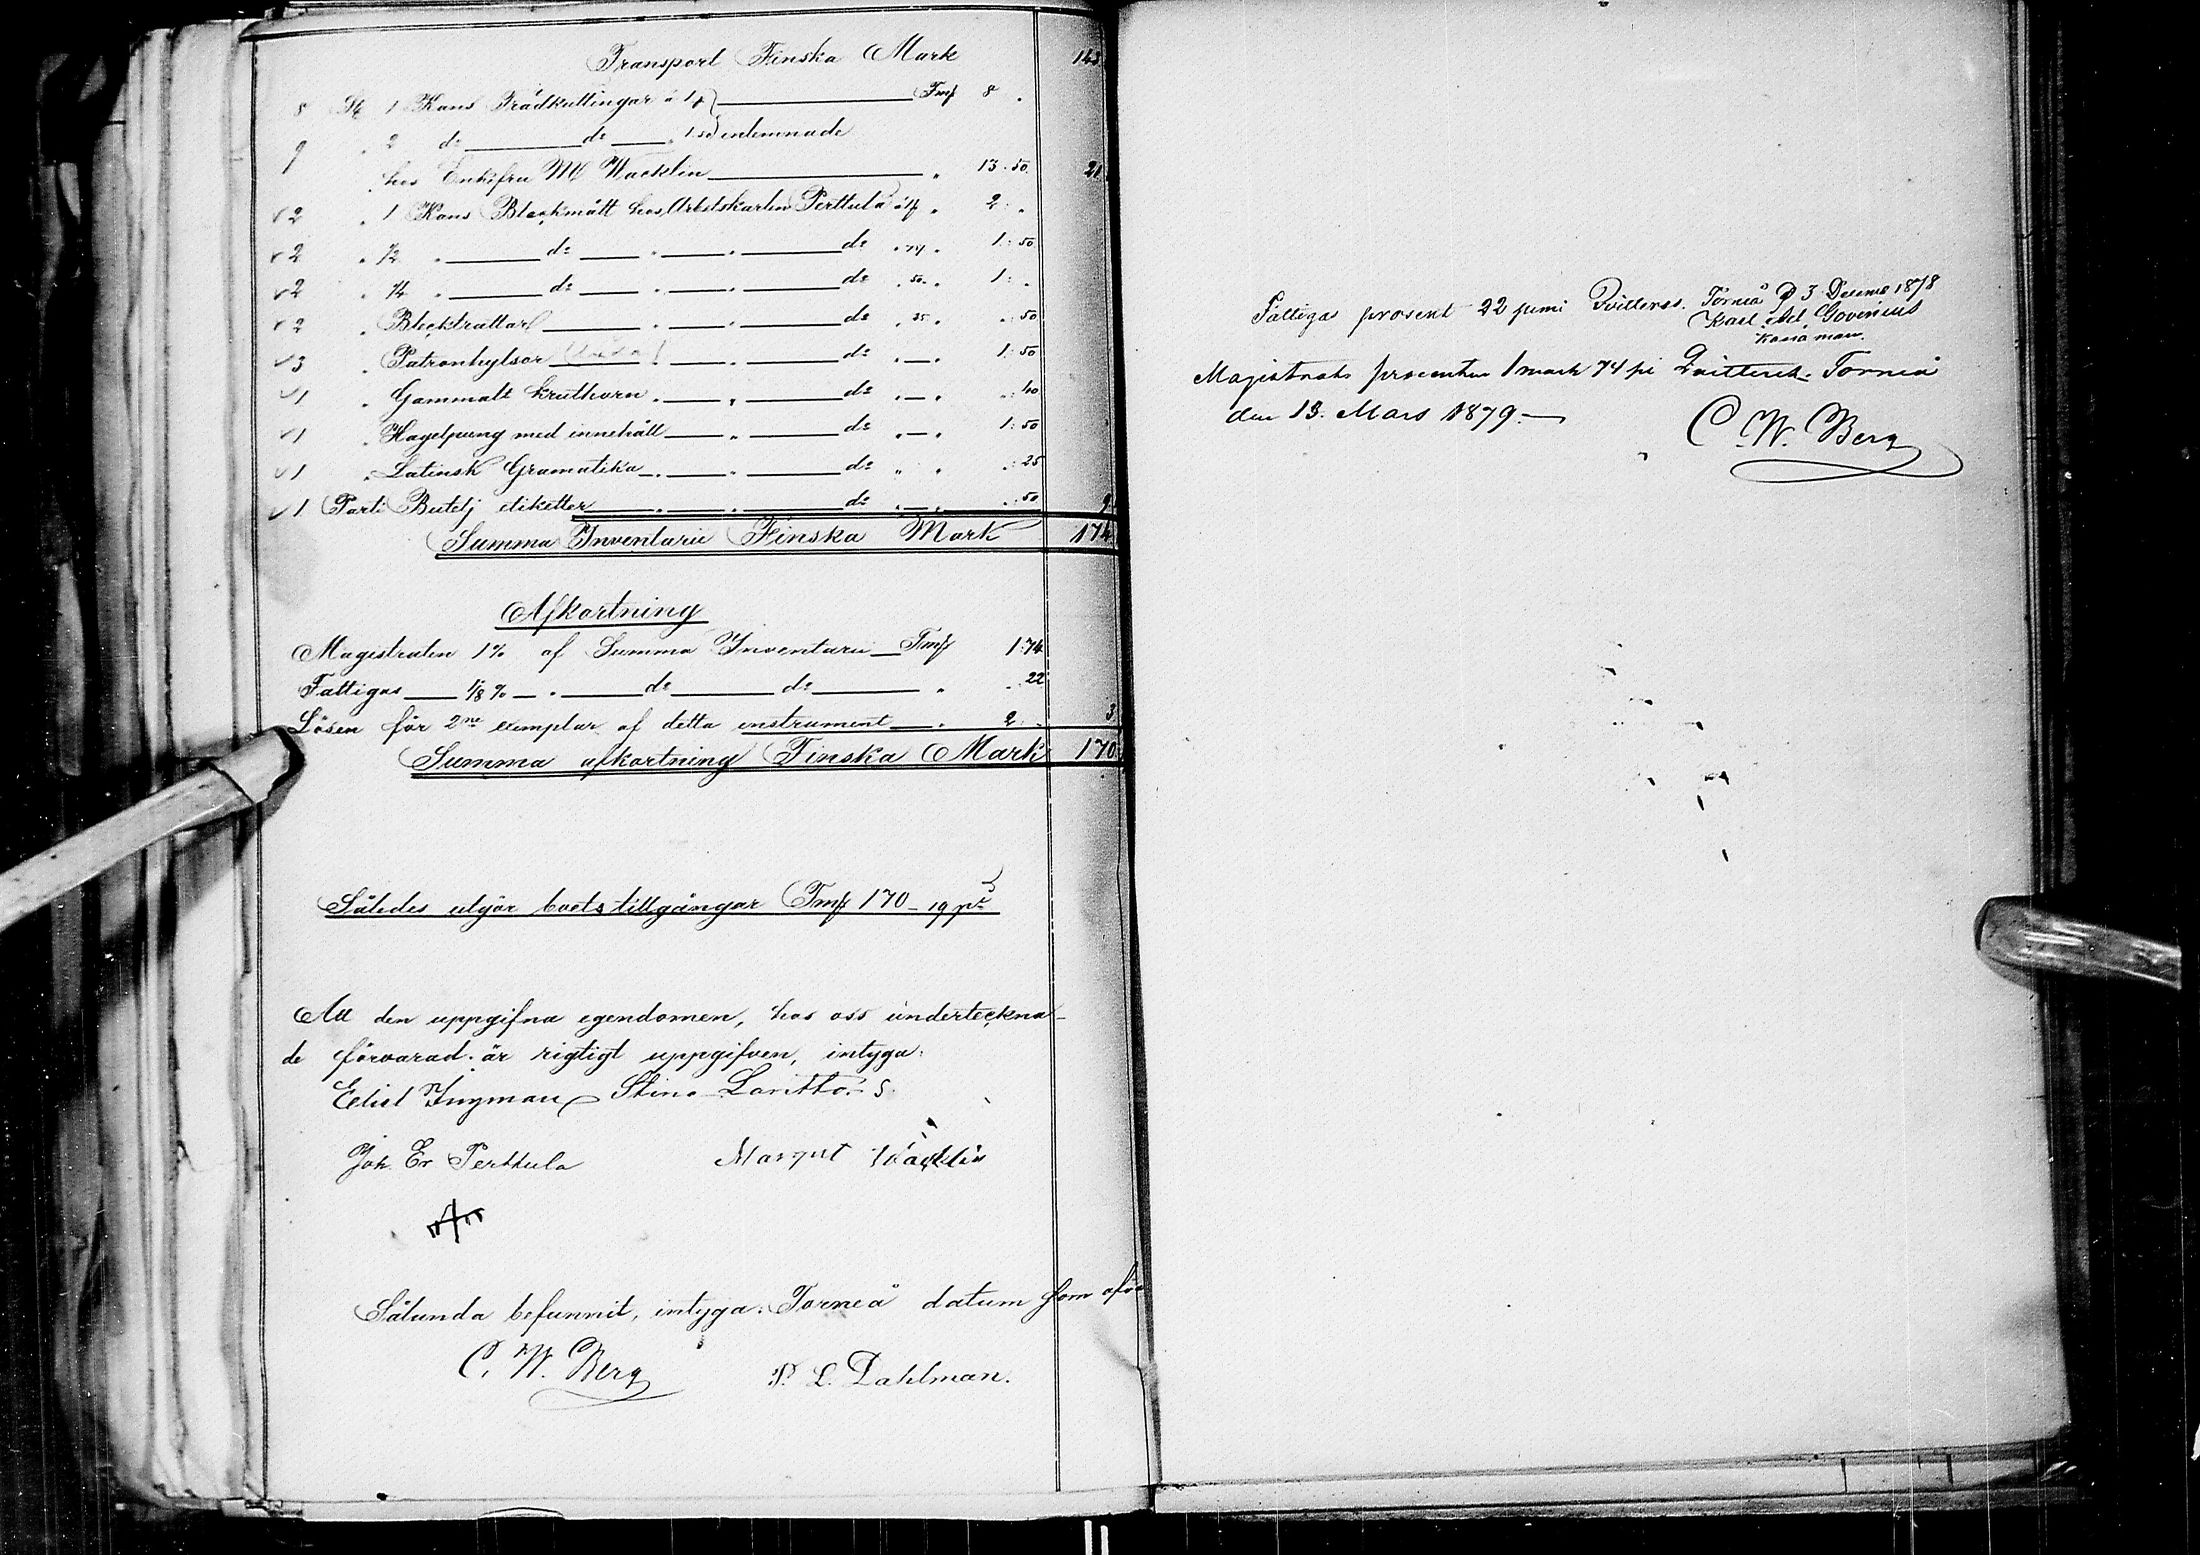 Transport Finska Mark 143
8 St 1 Kans Trädkuttingar à 1 Fmk 8 .
9 " 2 do do " 1.50 inlemnade
hos Enkefru M Wacklin " 13.50. 21
2 " 1 Kans Bleckmått hos Arbetskarlen Perttula à " 2 .
2 " 1/2 " do " " do " " 1.50
2 " 1/4 " do " " do " 50 " 1 .
2 " Blecktrattar " " do " 25 " " 50
3 " Patronhylsor " do " " 1.50
1 " Gammalt kruthorn " " do " "
1 " Hagelpung med innehåll " do " " 1.50
1 " Latinsk Gramatika " " do " " . 25
1 Parti Butelj etiketter " " do " " . 50 9
Summa Inventarii Finska Mark 174
Afkortning
Magistraten 1% af Summa Inventarii Fmk 1.74
Fattigas 1/8 % " do do " . 22
Lösen för 2ne exemplar af detta instrument " 2 . 3
Summa afkortning Finska Mark 170
Således utgör boets tillgångar Fmk 170 - 19 pi
Att den uppgifna egendomen, hos oss underteckna-
de förvarad är rigtigt uppgifven, intyga:
Eeliel Ingman Stina
Joh. Er Perttula Margret Wacklin
Sålunda befunnit, intyga: Torneå datum som
C. W. Berg P. L. Dahlman.
Fattigas prosent 22 penni Qvitteras. Torneå d 3 Decemb 1878
Karl Ad. Govenius
Kassaman.
Magistrats procenten 1 mark 74 pi Qvitterat. Torneå
den 13. Mars 1879.
C. W. Berg